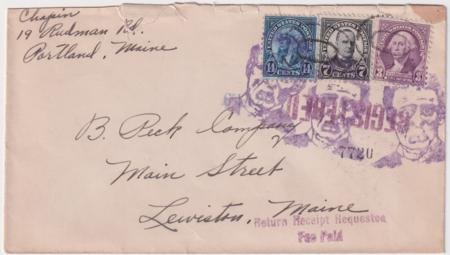 Chapin
19 Rudman Rd.
Portland, Maine
UNITED STATES POSTAGE
14 CENTS 14
7 CENTS 7
3 3
REGISTERED
7720
B. Peck Company
Main Street
Lewiston, Maine
Return Receipt Requested
Fee Paid